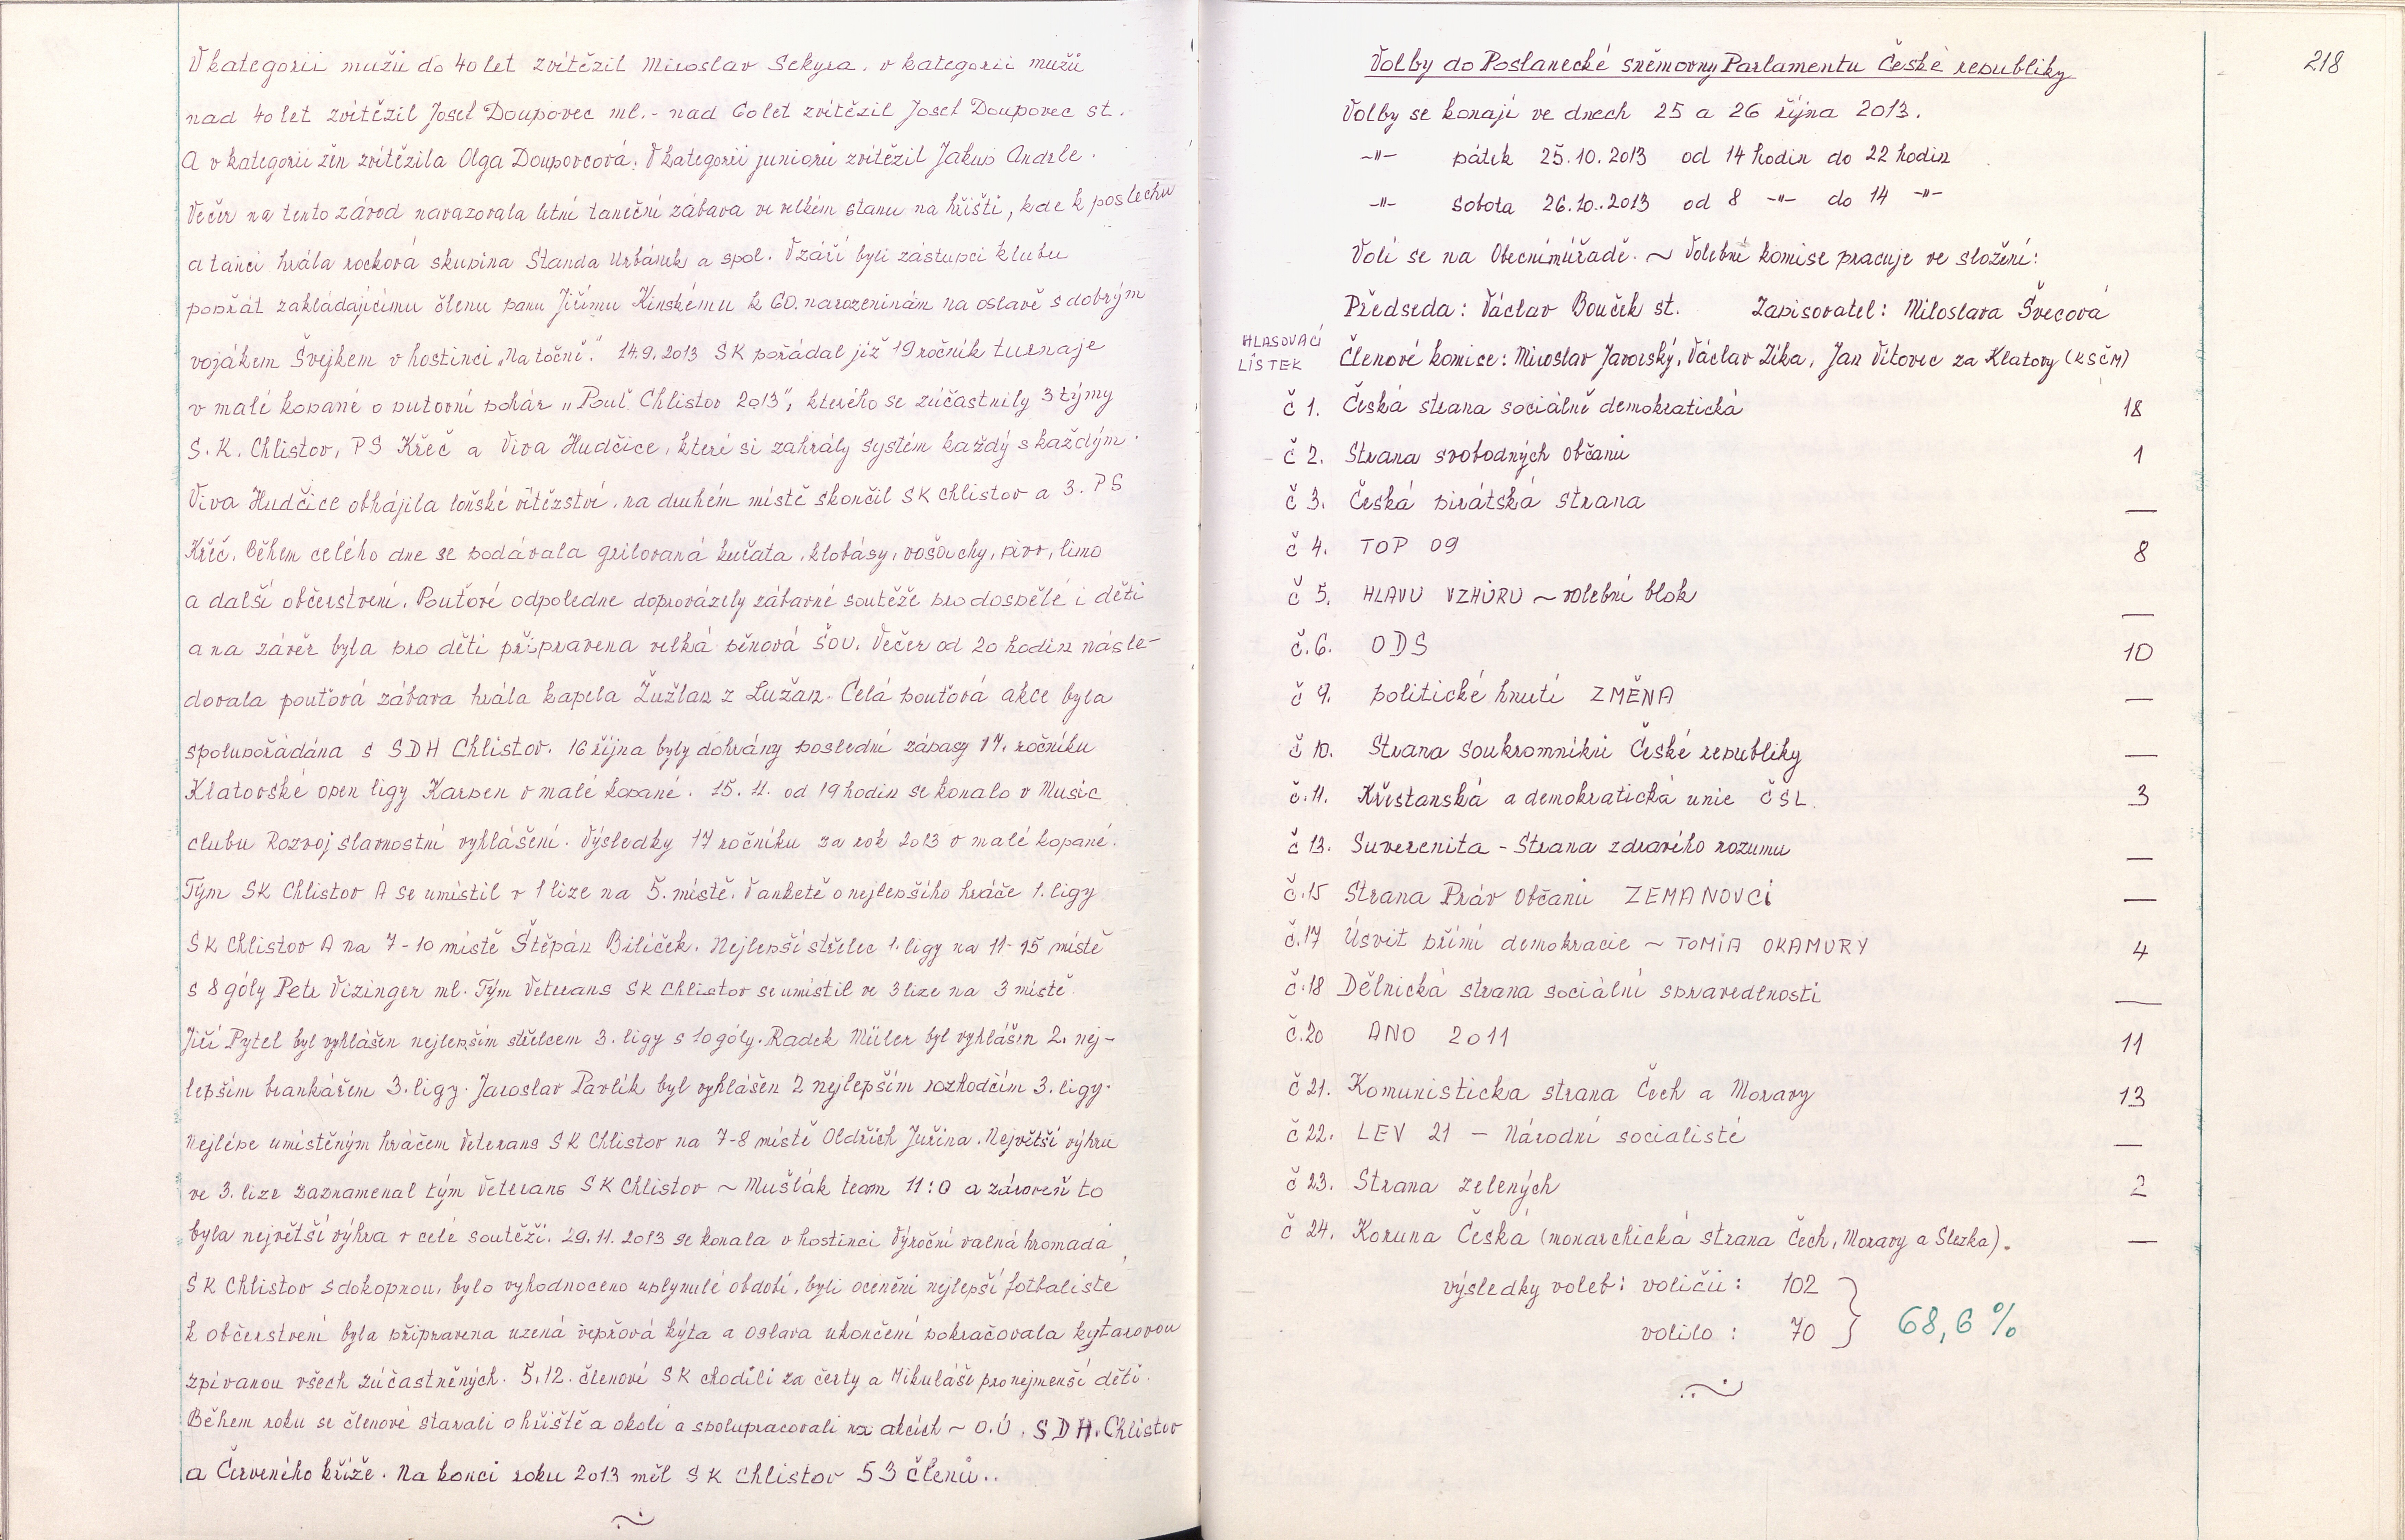 V kategorii mužů do 40 let zvítězil Miroslav Sekyra, v kategorii mužů
nad 40 let zvítězil Josef Doupovec ml. - nad 60 let zvítězil Josef Doupovec st.
A v kategorii žen zvítězila Olga Doupovcová. V kategorii juniorů zvítězil Jakub Andrle.
Večer na tento závod navazovala letní taneční zábava ve velkém stanu na hřišti, kde k poslechu
a tanci hrála rocková skupina Standa Urbánek a spol. V září byli zástupci klubu
popřát zakládajícímu členu panu Jiřímu Kinskému k 60. narozeninám na oslavě s dobrým
vojákem Švejkem v hostinci „Na točně." 14.9.2013 SK pořádal již 19 ročník turnaje
v malé kopané o putovní pohár „Pouť Chlistov 2013", kterého se zúčastnily 3 týmy
S.K. Chlistov, PS Křeč a Viva Hudčice, které si zahrály systém každý s každým.
Viva Hudčice obhájila loňské vítězství, na druhém místě skončil SK Chlistov a 3. PS
Křeč. Během celého dne se podávala grilovaná kuřata, klobásy, vošouchy, pivo, limo
a další občerstvení. Pouťové odpoledne doprovázely zábavné soutěže pro dospělé i děti
a na závěr byla pro děti připravena velká pěnová šou. Večer od 20 hodin násle-
dovala pouťová zábava hrála kapela Žužlan z Lužan. Celá pouťová akce byla
spolupořádána s SDH Chlistov. 16 října byly dohrány poslední zápasy 17. ročníku
Klatovské open ligy Karpen v malé kopané. 15.11. od 19 hodin se konalo v Music
clubu Rozvoj slavnostní vyhlášení. Výsledky 17 ročníku za rok 2013 v malé kopané.
Tým SK Chlistov A se umístil v 1 lize na 5. místě. V anketě o nejlepšího hráče 1. ligy
SK Chlistov A na 7-10 místě Štěpán Bilíček. Nejlepší střelec 1. ligy na 11-15 místě
s 8 góly Petr Vizinger ml. Tým Veterans SK Chlistov se umístil ve 3 lize na 3 místě.
Jiří Pytel byl vyhlášen nejlepším střelcem 3. ligy s 10 góly. Radek Müler byl vyhlášen 2. nej-
lepším brankářem 3. ligy. Jaroslav Pavlík byl vyhlášen 2 nejlepším rozhodčím 3. ligy.
Nejlépe umístěným hráčem Veterans SK Chlistov na 7-8 místě Oldřich Juřina. Největší výhru
ve 3. lize zaznamenal tým Veterans SK Chlistov ~ Mušlák team 11:0 a zároveň to
byla největší výhra v celé soutěži. 29.11.2013 se konala v hostinci Výroční valná hromada
SK Chlistov s dokopnou, bylo vyhodnoceno uplynulé období, byli oceněni nejlepší fotbalisté
k občerstvení byla připravena uzená vepřová kýta a oslava ukončení pokračovala kytarovou
zpívanou všech zúčastněných. 5.12. členové SK chodili za čerty a Mikuláše pro nejmenší děti.
Během roku se členové starali o hřiště a okolí a spolupracovali na akcích ~ O.Ú, SDH. Chlistov
a Červeného kříže. Na konci roku 2013 měl SK Chlistov 53 členů..
218
Volby do Poslanecké sněmovny Parlamentu České republiky
Volby se konají ve dnech 25 a 26 října 2013.
-"- pátek 25.10.2013 od 14 hodin do 22 hodin
-"- sobota 26.10.2013 od 8 -"- do 14 -"-
Volí se na Obecním úřadě. ~ Volební komise pracuje ve složení:
Předseda: Václav Bouček st. Zapisovatel: Miloslava Švecová
HLASOVACÍ LÍSTEK
Členové komice: Miroslav Javorský, Václav Zíka, Jan Vítovec za Klatovy (KSČM)
č 1. Česká strana sociálně demokratická 18
č 2. Strana svobodných občanů 1
č 3. Česká pirátská strana —
č 4. TOP 09 8
č 5. HLAVU VZHŮRU ~ volební blok —
č.6. ODS 10
č 9. politické hnutí ZMĚNA —
č 10. Strana soukromníků České republiky —
č.11. Křestanská a demokratická unie ČSL 3
č 13. Suverenita - Strana zdravého rozumu —
č.15 Strana Práv Občanů ZEMANOVCI —
č.17 Úsvit přímí demokracie ~ TOMIA OKAMURY 4
č.18 Dělnická strana sociální spravedlnosti —
č.20 ANO 2011 11
č 21. Komunisticka strana Čech a Moravy 13
č 22. LEV 21 - Národní socialisté —
č 23. Strana zelených 2
č 24. Koruna Česká (monarchická strana Čech, Moravy a Slezka). —
výsledky voleb: voličů: 102
volilo: 70
68,6 %